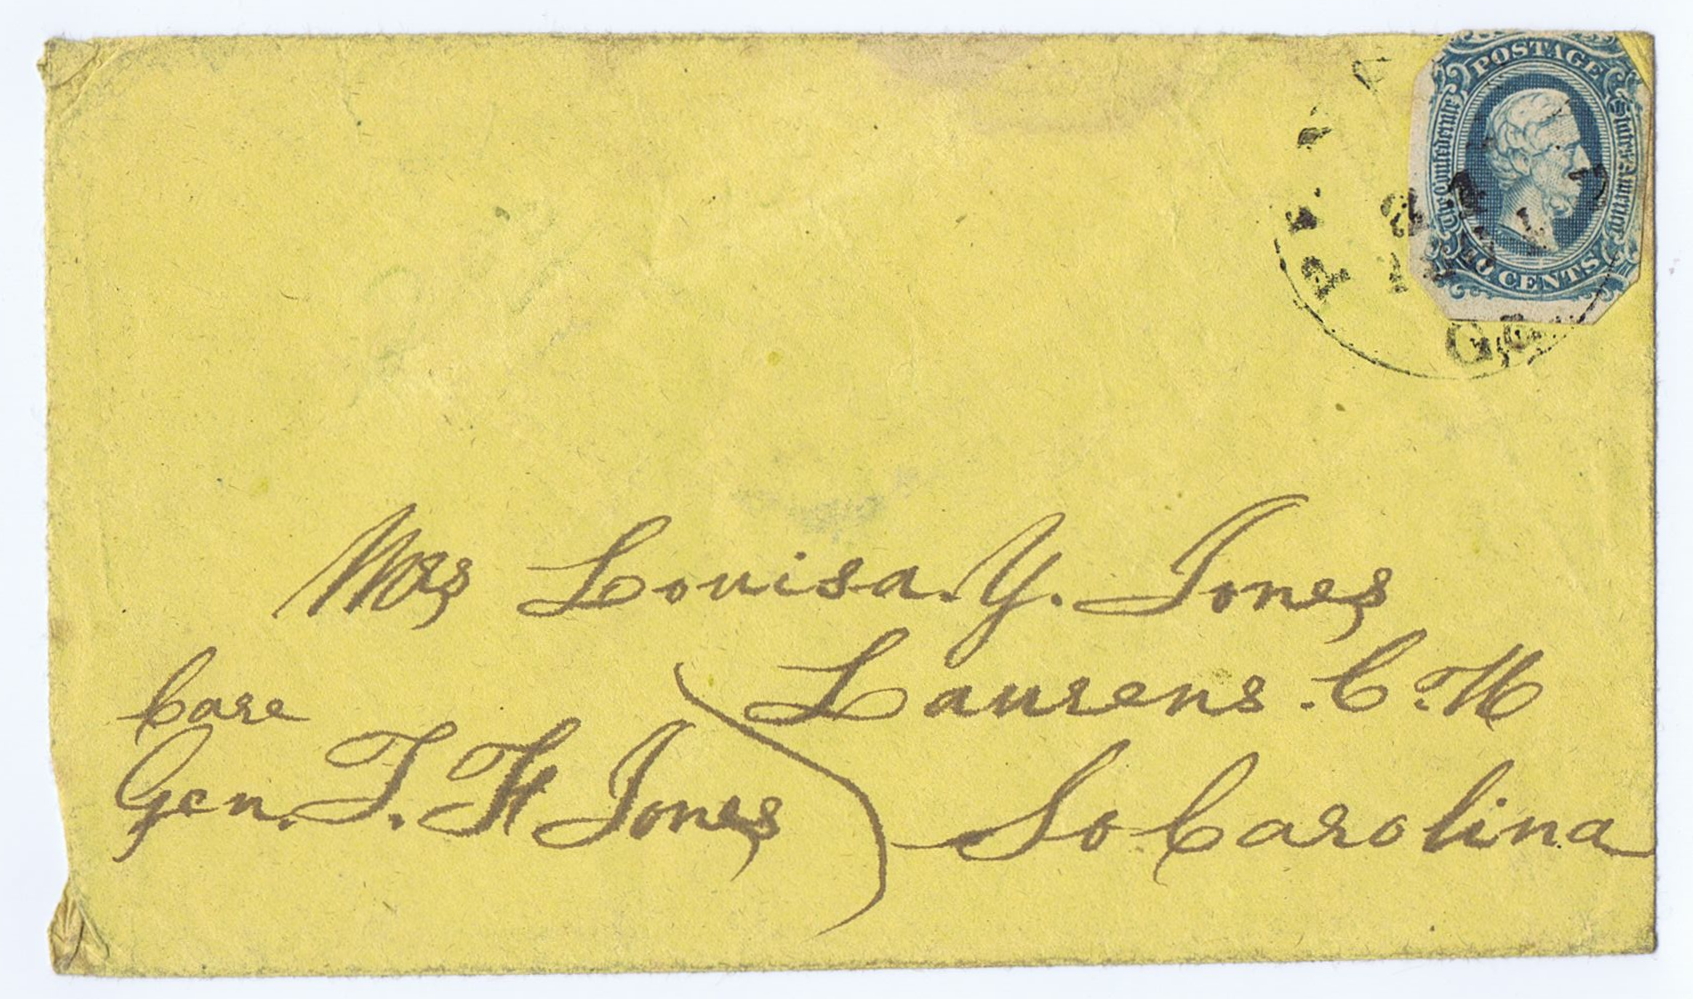 POSTAGE
The Confederate States of America
CENTS
GA
Mrs Louisa. Y. Jones
Laurens. C. H
So Carolina
Care
Gen. T. H Jones